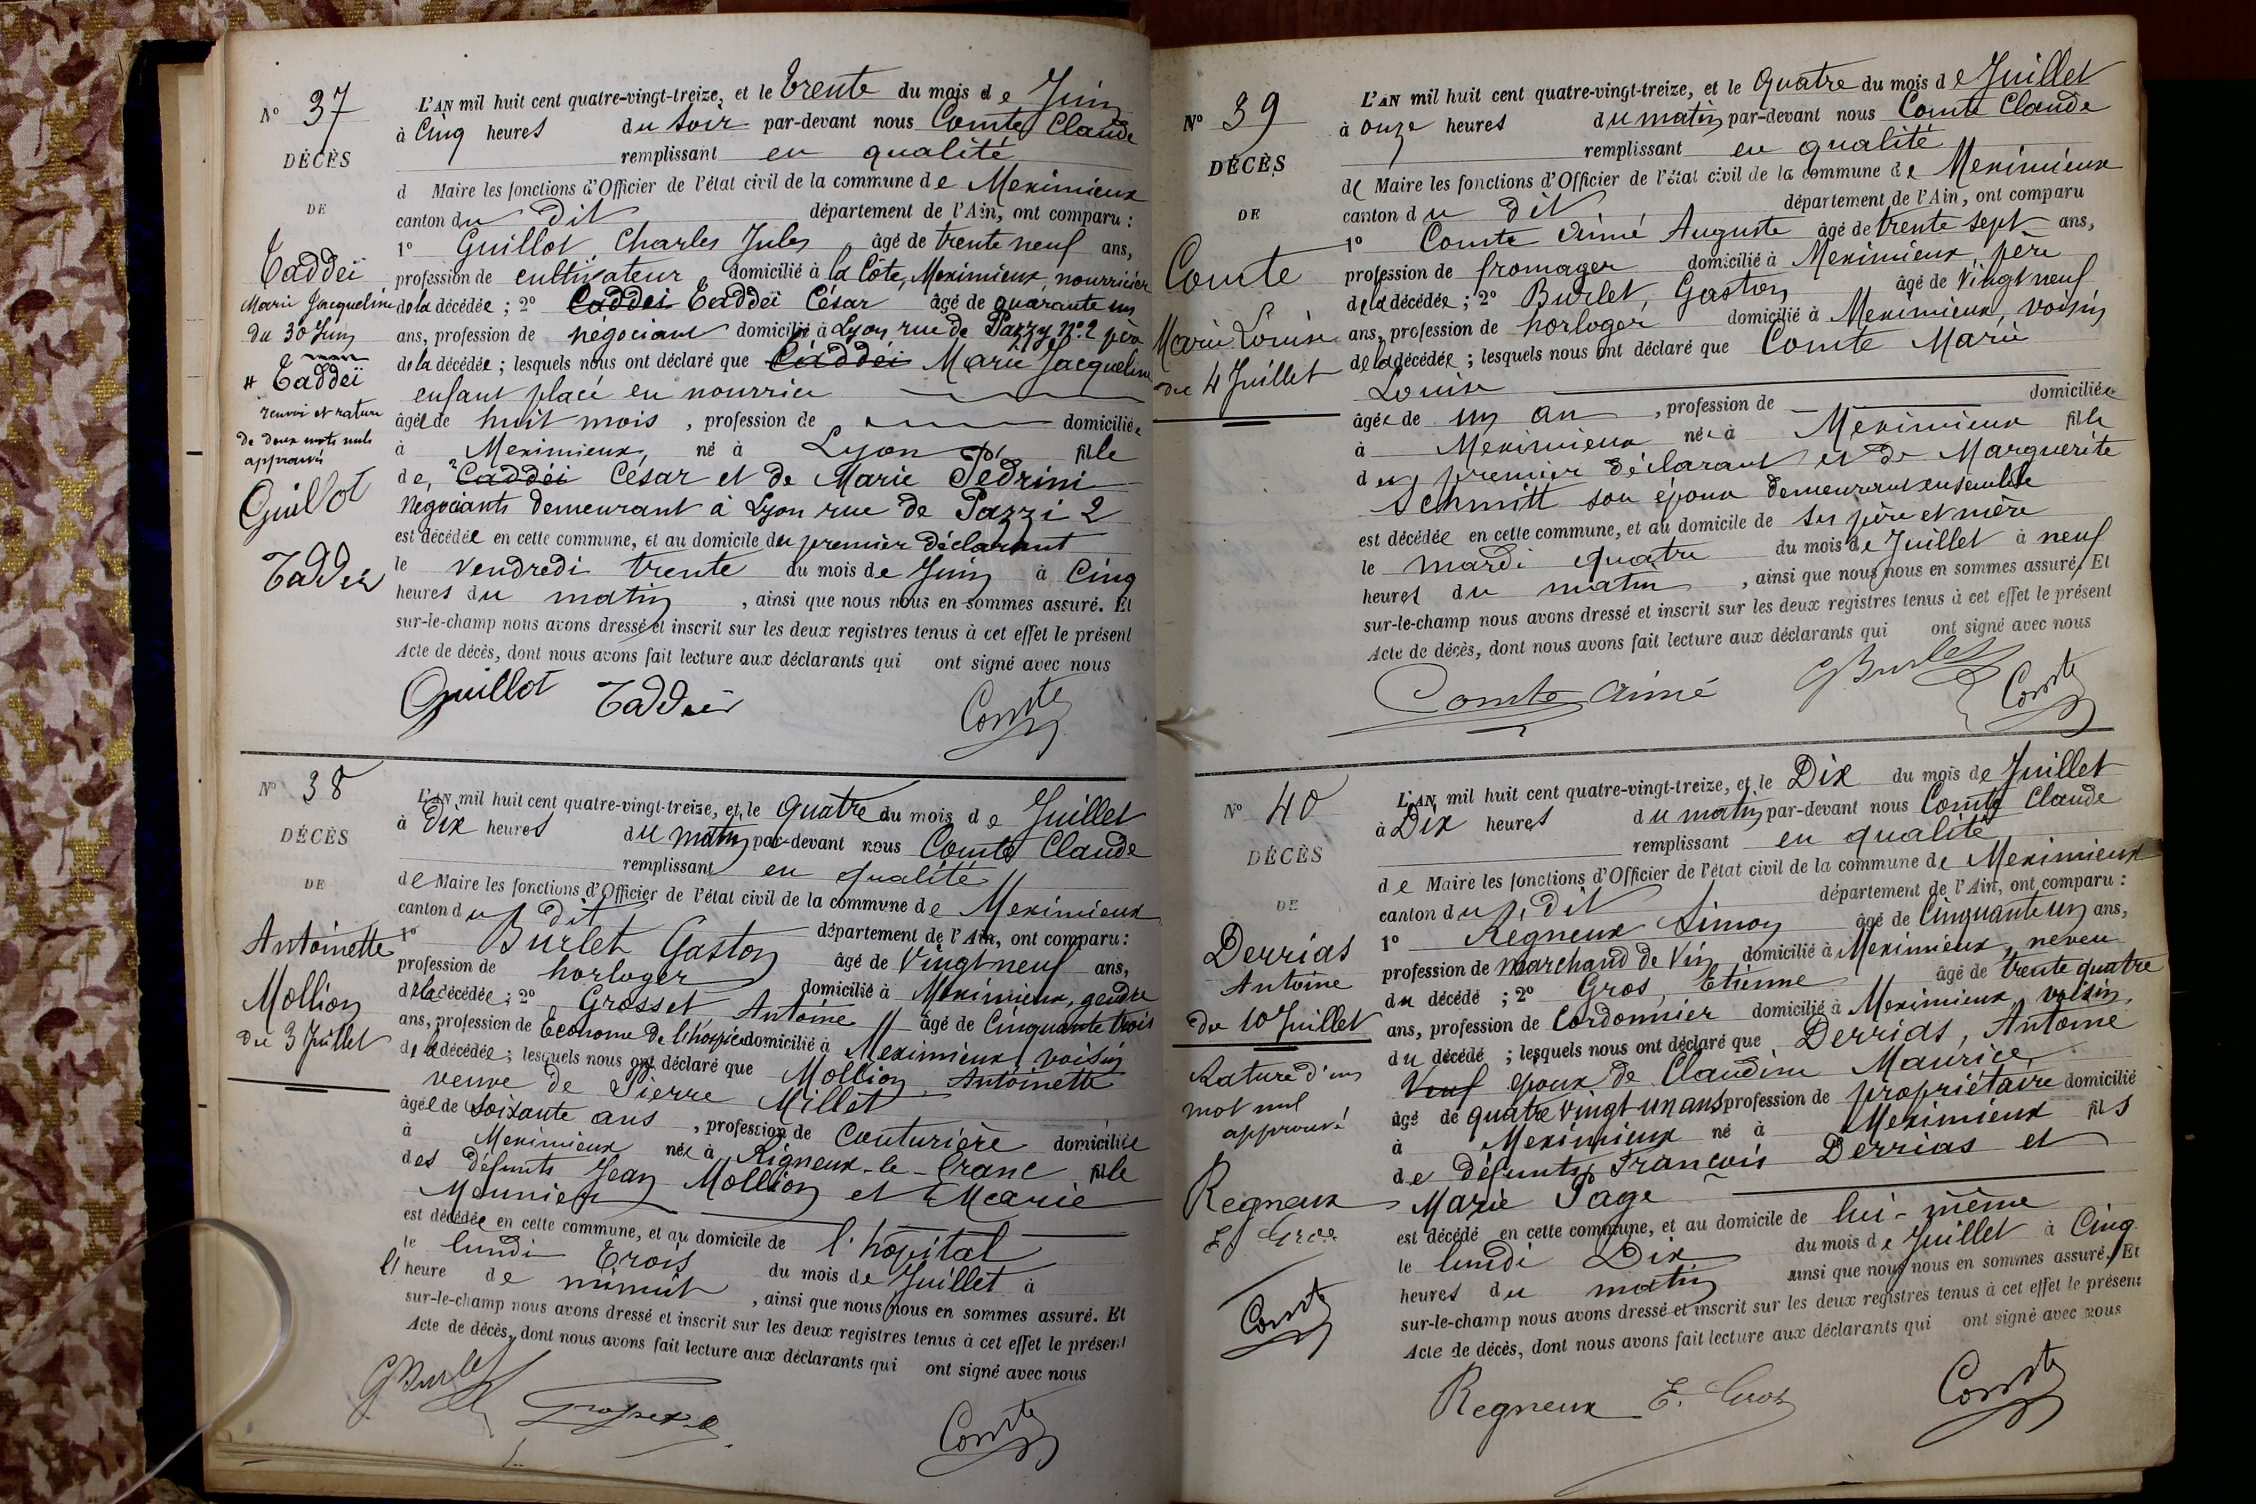 N° 37
DÉCÈS
DE
Taddeï
Marie Jacqueline
du 30 Juin
# Taddeï
renvoi et rature
de deux mots nuls
approuvés
Guillot
Taddei
L'AN mil huit cent quatre-vingt-treize, et le trente du mois de Juin
à Cinq heures du soir par-devant nous Comte Claude
remplissant en qualité
d Maire les fonctions d'Officier de l'état civil de la commune de Meximieux
canton du dit département de l'Ain, ont comparu :
1° Guillot Charles Jules âgé de trente neuf ans,
profession de cultivateur domicilié à la Côte, Meximieux, nourricier
de la décédée ; 2° Caddei Taddeï César âgé de quarante un
ans, profession de négociant domicilié à Lyon rue de Pazzy n° 2 père
de la décédée ; lesquels nous ont déclaré que Caddéi Marie Jacqueline
enfant placé en nourrice
âgée de huit mois, profession de domiciliée
à Meximieux, né à Lyon fille
de Caddéi César et de Marie Pedrini
Négociants demeurant à Lyon rue de Pazzi 2
est décédée en cette commune, et au domicile du premier déclarant
le vendredi trente du mois de Juin à Cinq
heures du matin, ainsi que nous nous en sommes assuré. Et
sur-le-champ nous avons dressé et inscrit sur les deux registres tenus à cet effet le présent
Acte de décès, dont nous avons fait lecture aux déclarants qui ont signé avec nous
Guillot Taddei Comte
N° 38
DÉCÈS
DE
Antoinette
Mollion
du 3 Juillet
L'AN mil huit cent quatre-vingt-treize, et le quatre du mois de Juillet
à Dix heures du matin par-devant nous Comte Claude
remplissant en qualité
de Maire les fonctions d'Officier de l'état civil de la commune de Meximieux
canton du dit département de l'Ain, ont comparu :
1° Burlet Gaston âgé de Vingt neuf ans,
profession de horloger domicilié à Meximieux, gendre
de la décédée ; 2° Grosset, Antoine âgé de Cinquante trois
ans, profession de Econome de l'hospice domicilié à Meximieux voisin
de la décédée ; lesquels nous ont déclaré que Mollion Antoinette
veuve de Pierre Millet
âgée de soixante ans, profession de Couturière domiciliée
à Meximieux née à Rigneux-le-Franc fille
des défunts Jean Mollion et Marie
Meunier
est décédée en cette commune, et au domicile de l'hôpital
le lundi Trois du mois de Juillet à
l' heure de minuit, ainsi que nous nous en sommes assuré. Et
sur-le-champ nous avons dressé et inscrit sur les deux registres tenus à cet effet le présent
Acte de décès, dont nous avons fait lecture aux déclarants qui ont signé avec nous
GBurlet Comte
N° 39
DÉCÈS
DE
Comte
Marie Louise
du 4 Juillet
L'AN mil huit cent quatre-vingt-treize, et le Quatre du mois de Juillet
à onze heures du matin par-devant nous Comte Claude
remplissant en qualité
de Maire les fonctions d'Officier de l'état civil de la commune de Meximieux
canton du dit département de l'Ain, ont comparu
1° Comte Aimé Auguste âgé de trente sept ans,
profession de fromager domicilié à Meximieux, père
de la décédée ; 2° Burlet, Gaston âgé de Vingt neuf
ans, profession de horloger domicilié à Meximieux, voisin
de la décédée ; lesquels nous ont déclaré que Comte Marie
Louise
âgée de un an, profession de domiciliée
à Meximieux née à Meximieux fille
du premier déclarant et de Marguerite
Schmitt son épouse demeurant ensemble
est décédée en cette commune, et au domicile de ses père et mère
le mardi quatre du mois de Juillet à neuf
heures du matin, ainsi que nous nous en sommes assuré. Et
sur-le-champ nous avons dressé et inscrit sur les deux registres tenus à cet effet le présent
Acte de décès, dont nous avons fait lecture aux déclarants qui ont signé avec nous
Comte Aimé GBurlet Comte
N° 40
DÉCÈS
DE
Derrias
Antoine
du 10 Juillet
Rature d'un
mot nul
approuvé
Regneux
E. Gros
Comte
L'AN mil huit cent quatre-vingt-treize, et le Dix du mois de Juillet
à Dix heures du matin par-devant nous Comte Claude
remplissant en qualité
de Maire les fonctions d'Officier de l'état civil de la commune de Meximieux
canton du dit département de l'Ain, ont comparu :
1° Regneux Simon âgé de Cinquante un ans,
profession de marchand de Vin domicilié à Meximieux, neveu
du décédé ; 2° Gros, Etienne âgé de trente quatre
ans, profession de Cordonnier domicilié à Meximieux, voisin
du décédé ; lesquels nous ont déclaré que Derrias, Antoine
Veuf époux de Claudine Maurice
âgé de quatre vingt un ans profession de propriétaire domicilié
à Meximieux né à Meximieux fils
de défunts François Derrias et
Marie Page
est décédé en cette commune, et au domicile de lui-même
le lundi Dix du mois de Juillet à Cinq
heures du matin ainsi que nous nous en sommes assuré. Et
sur-le-champ nous avons dressé et inscrit sur les deux registres tenus à cet effet le présent
Acte de décès, dont nous avons fait lecture aux déclarants qui ont signé avec nous
Regneux E. Gros Comte